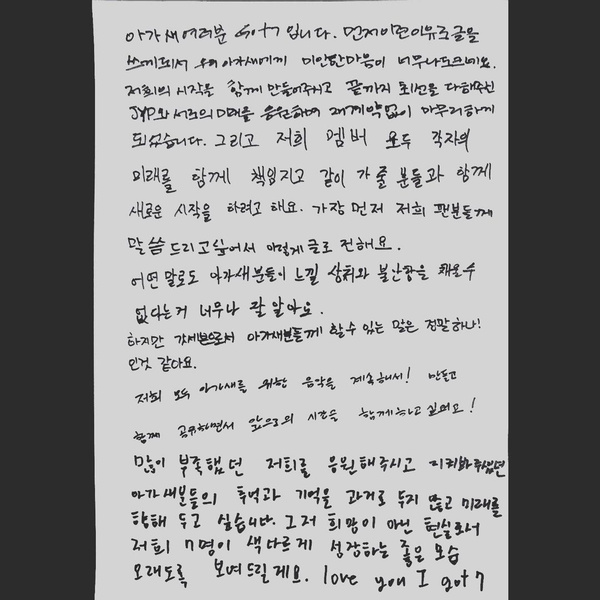 아가새여러분 Got7 입니다. 먼저이런이유로글을
쓰게되서 우리 아가새에게 미안한마음이 너무나도크네요.
저희의 시작을 함께 만들어주시고 끝까지 최선을 다해주신
JYP와 서로의 미래를 응원하며 재계약없이 마무리하게
되었습니다. 그리고 저희 멤버 모두 각자의
미래를 함께 책임지고 같이 가 줄 분들과 함께
새로운 시작을 하려고 해요. 가장 먼저 저희 팬분들께
말씀 드리고싶어서 이렇게 글로 전해요.
어떤 말로도 아가새분들이 느낄 상처와 불안함을 채울수
없다는거 너무나 잘 알아요.
하지만 갓세븐으로서 아가새분들께 할수 있는 말은 정말 하나!
인것 같아요.
저희 모두 아가새를 위한 음악을 계속해서! 만들고
함께 공유하면서 앞으로의 시간을 함께하고 싶어요!
많이 부족했던 저희를 응원해주시고 지켜봐주셨던
아가새분들의 추억과 기억을 과거로 두지 않고 미래를
향해 두고 싶습니다. 그저 희망이 아닌 현실로서
저희 7명이 색다르게 성장하는 좋은 모습
오래도록 보여드릴게요. love you I got7